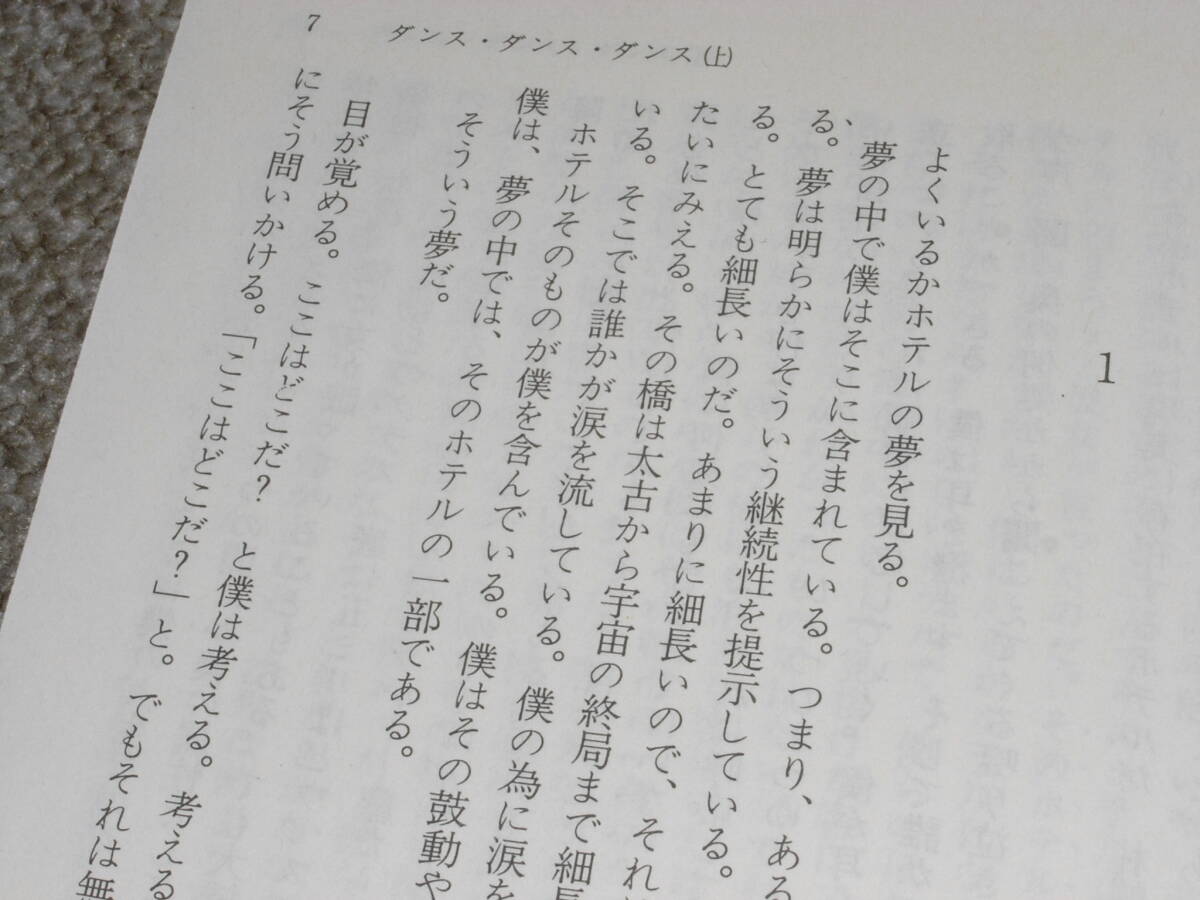 7
ダンス・ダンス・ダンス(上)
1
よくいるかホテルの夢を見る。
夢の中で僕はそこに含まれている。つまり、ある
る。夢は明らかにそういう継続性を提示している。
る。とても細長いのだ。あまりに細長いので、それ
たいにみえる。その橋は太古から宇宙の終局まで細長
いる。そこでは誰かが涙を流している。僕の為に涙を
ホテルそのものが僕を含んでいる。僕はその鼓動や
僕は、夢の中では、そのホテルの一部である。
そういう夢だ。
目が覚める。ここはどこだ? と僕は考える。考える
にそう問いかける。「ここはどこだ?」と。でもそれは無